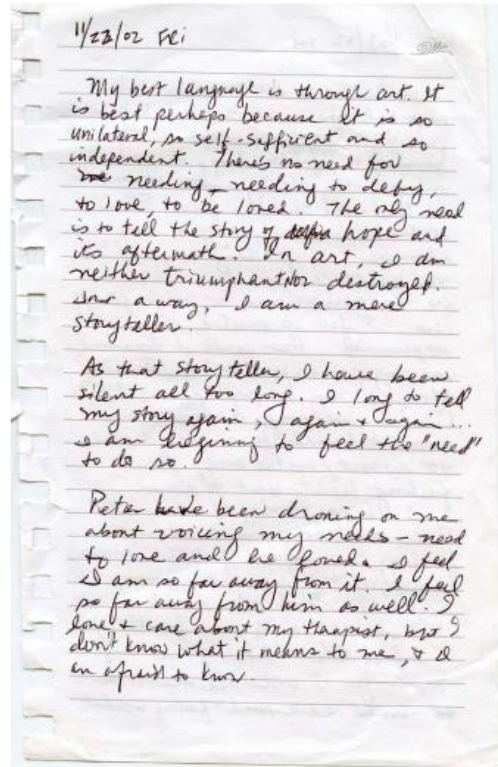 11/22/02 Fri
My best language is through art. It
is best perhaps because it is so
unilateral, so self-sufficient and so
independent. There's no need for
needing - needing to defy,
to love, to be loved. The only need
is to tell the story of hope and
its aftermath. In art, I am
neither triumphant nor destroyed.
In a way, I am a mere
storyteller.
As that storyteller, I have been
silent all too long. I long to tell
my story again, again + again...
I am beginning to feel the "need"
to do so.
Peter have been droning on me
about voicing my needs - need
to love and be loved. I feel
I am so far away from it. I feel
so far away from him as well. I
love + care about my therapist, but I
don't know what it means to me, + I
am afraid to know.